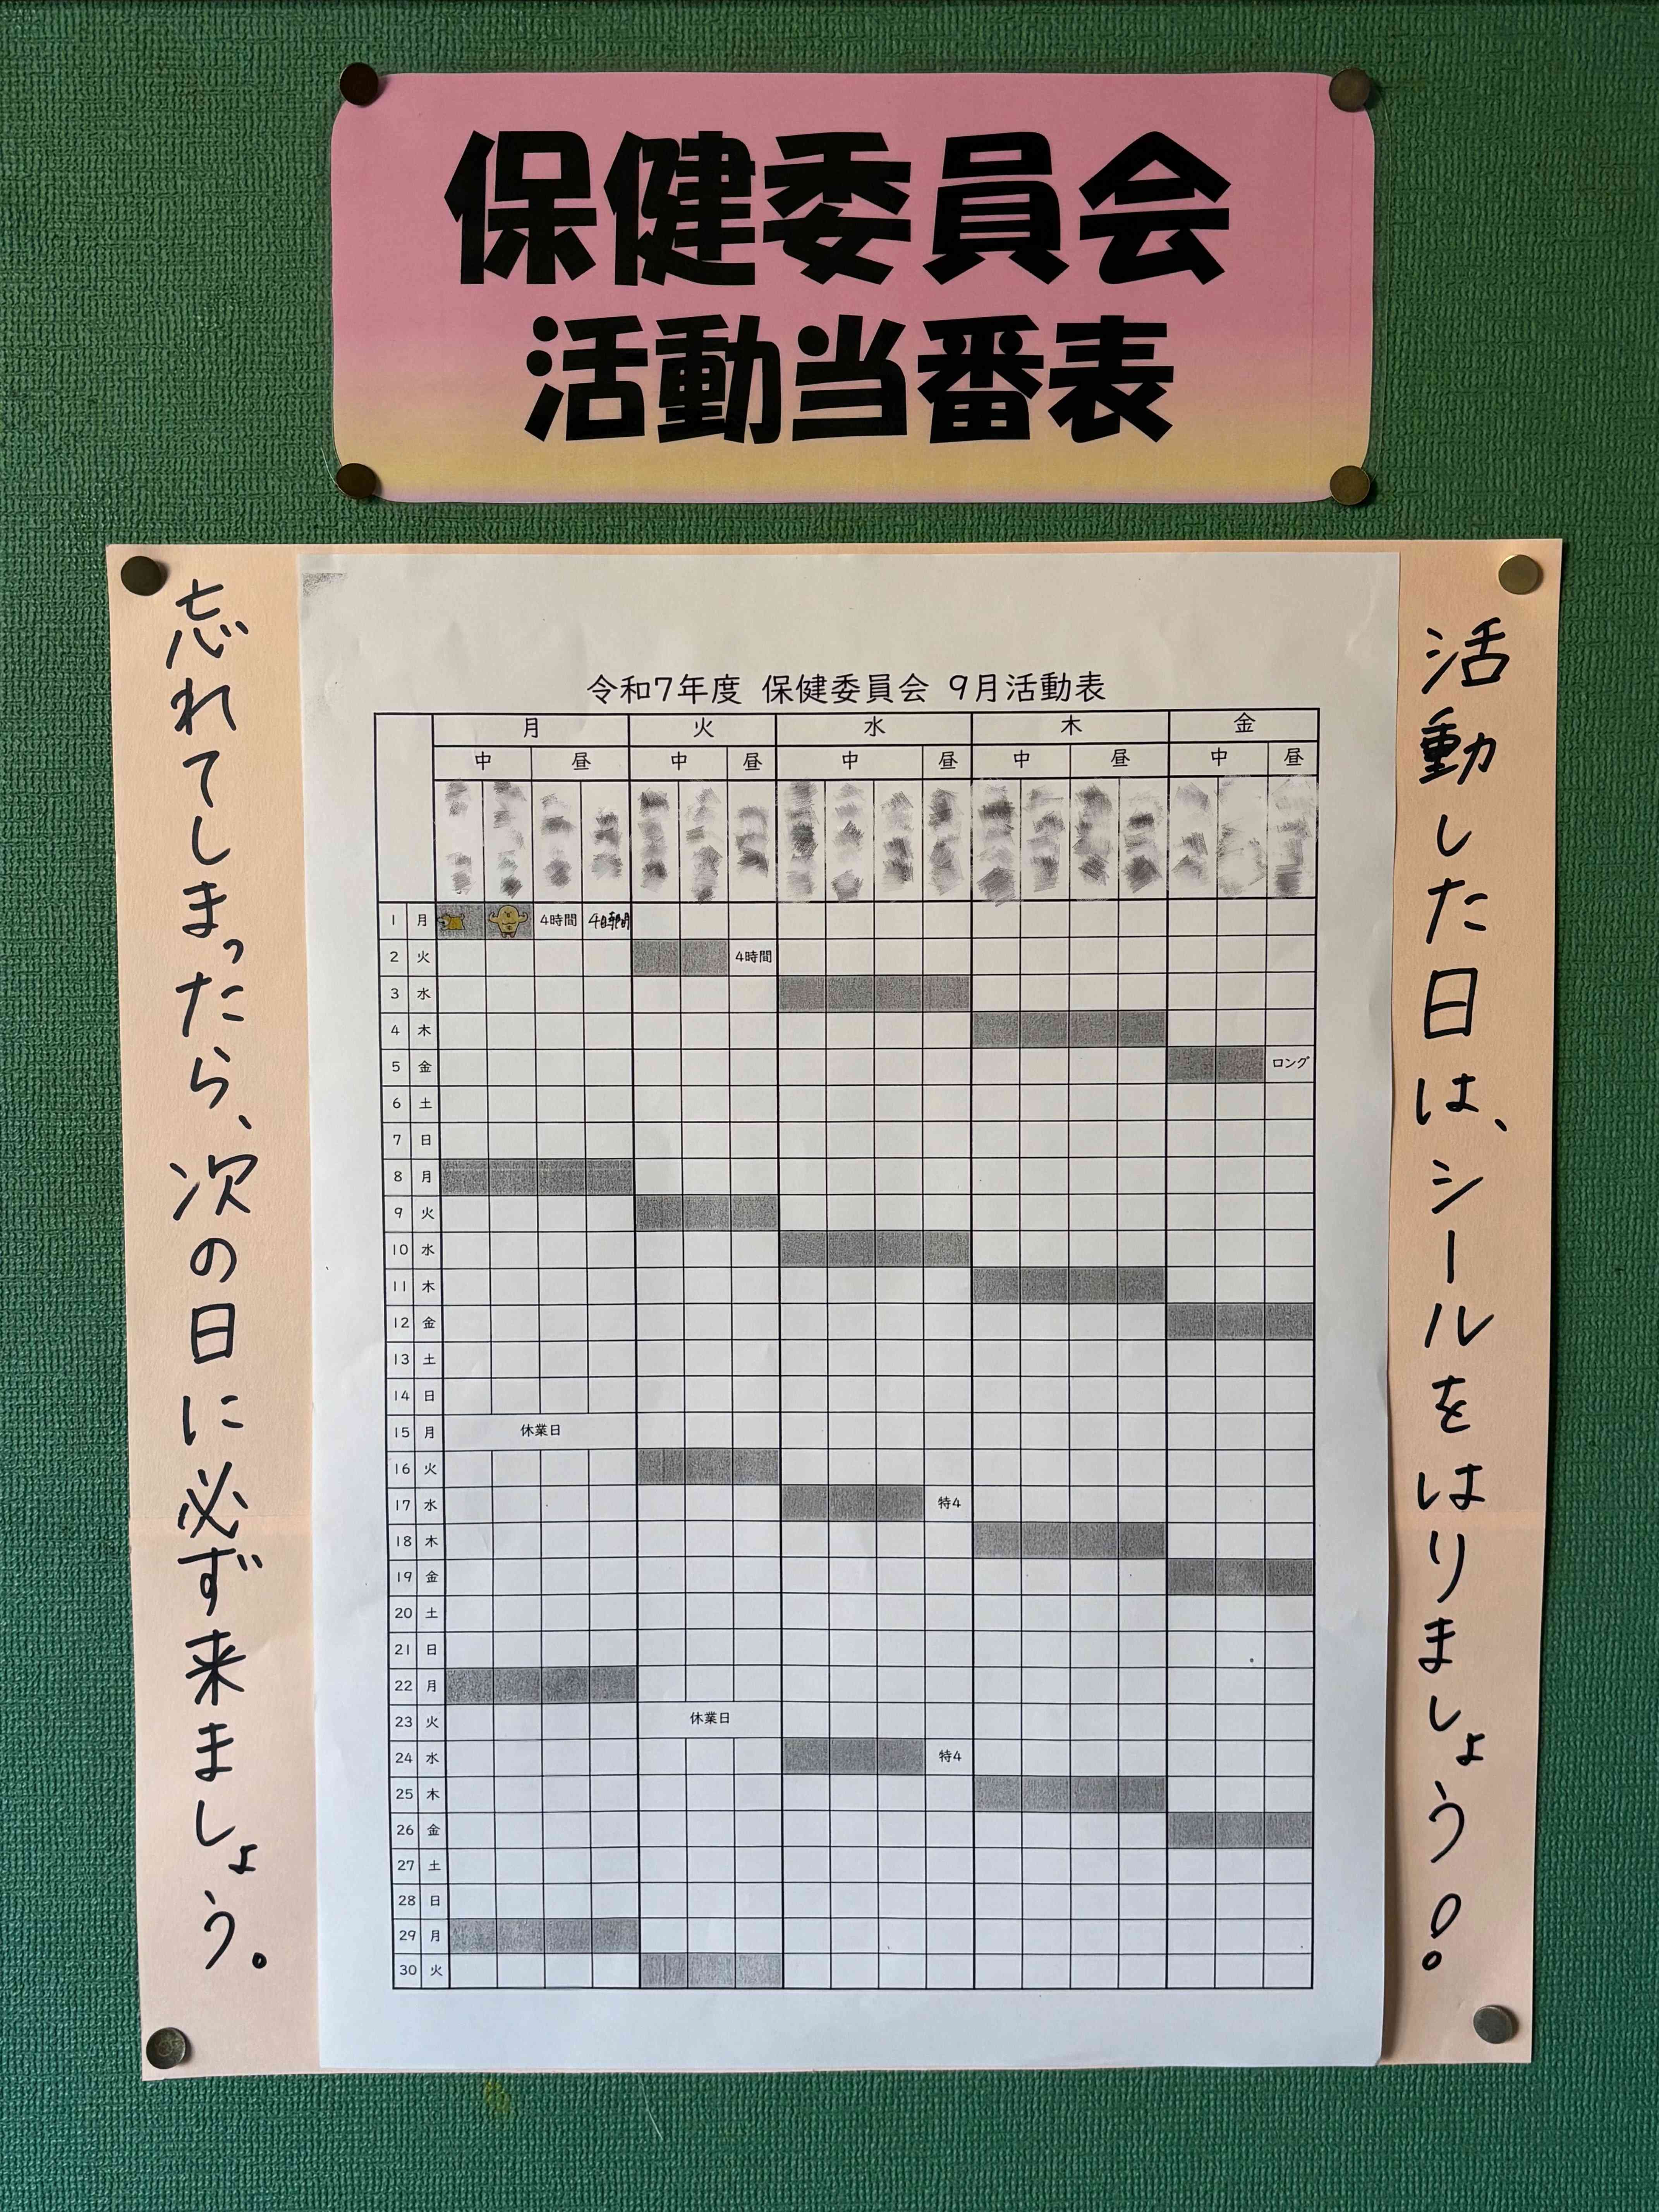 保健委員会
活動当番表
活動した日は、シールをはりましょう!
忘れてしまったら、次の日に必ず来ましょう。
令和7年度 保健委員会 9月活動表
月 火 水 木 金
中 昼 中 昼 中 昼 中 昼 中 昼
1 月 4時間 4時間
2 火 4時間
3 水
4 木
5 金 ロング
6 土
7 日
8 月
9 火
10 水
11 木
12 金
13 土
14 日
15 月 休業日
16 火
17 水 特4
18 木
19 金
20 土
21 日
22 月
23 火 休業日
24 水 特4
25 木
26 金
27 土
28 日
29 月
30 火